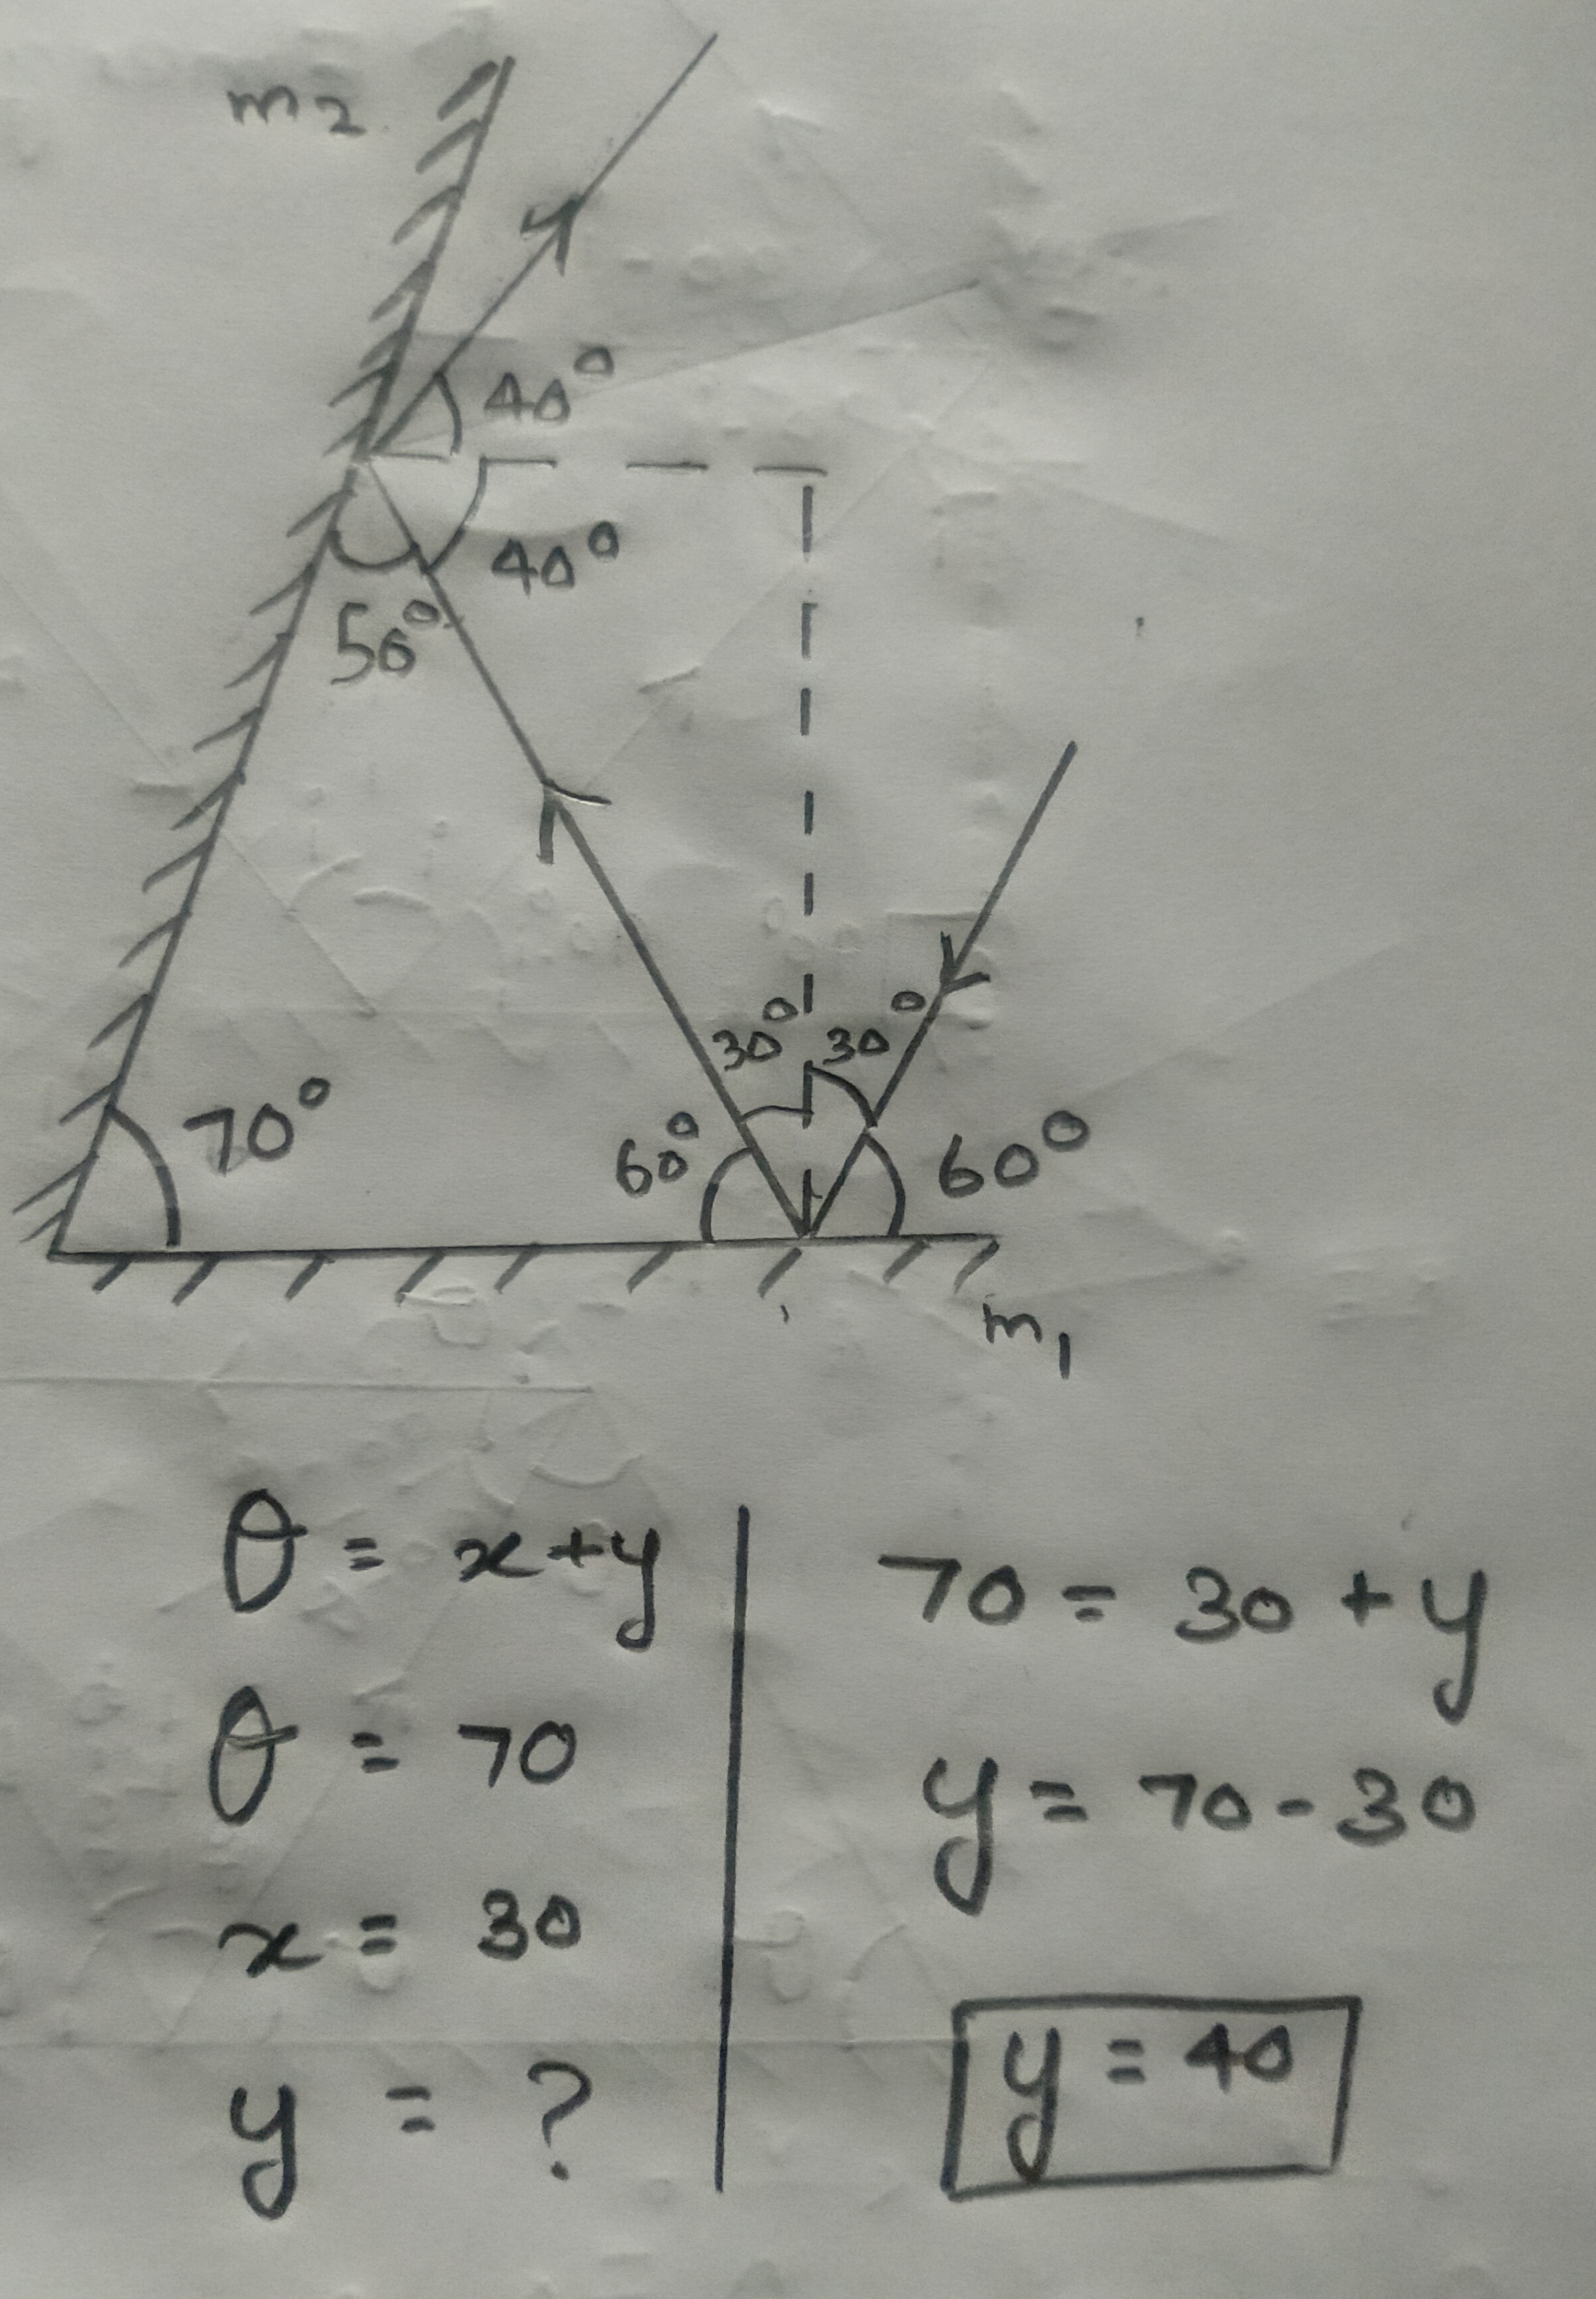 m2
40°
40°
50°
30° 30°
70°
60°
60°
m1
θ = x+y
θ = 70
x = 30
y = ?
70 = 30 + y
y = 70 - 30
y = 40